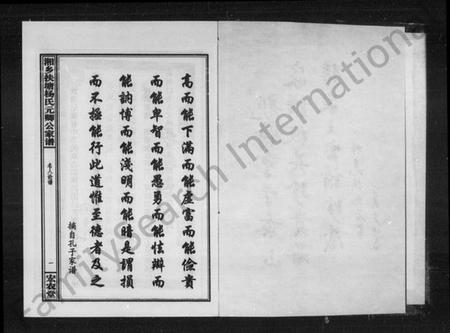 高而能下满而能虚富而能俭贵
而能卑智而能愚勇而能怯辩而
能讷博而能浅明而能暗是谓损
而不极能行此道惟至德者及之
摘自孔子家谱
湘乡扶塘杨氏元卿公家谱
名人论谱
一
宏农堂
FamilySearch International